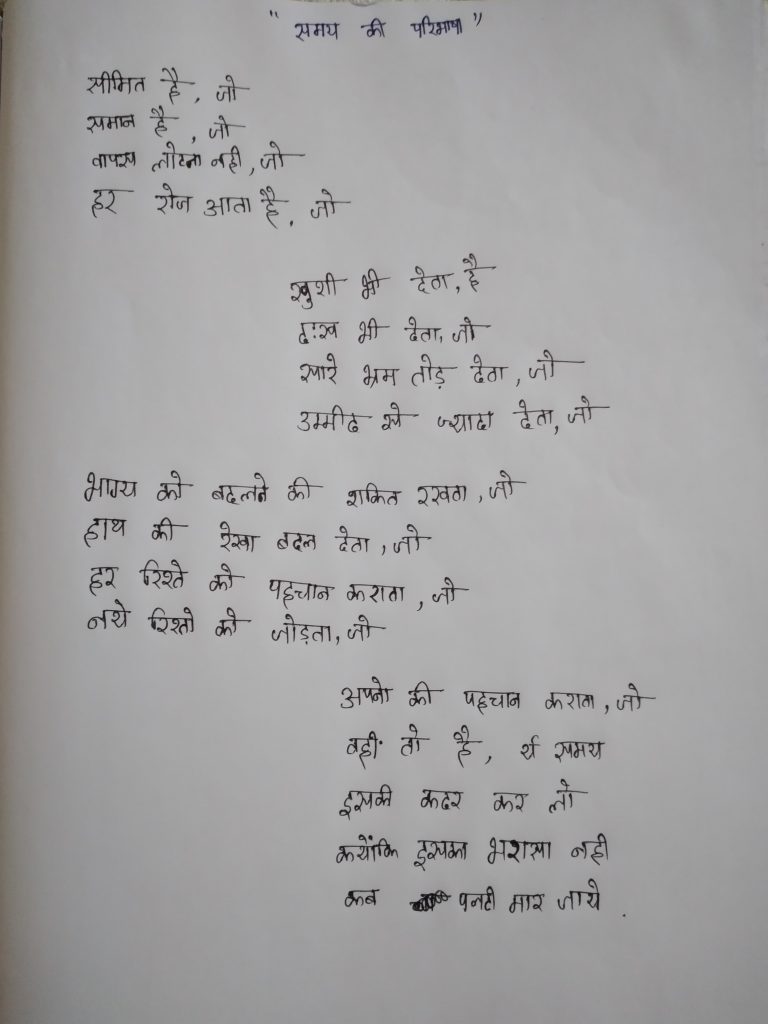 "समय की परिभाषा"
सीमित है, जो
समान है, जो
वापस लोटता नही, जो
हर रोज आता है, जो
खुशी भी देता, है
दुःख भी देता, जो
सारे भ्रम तोड़ देता, जो
उम्मीद से ज्यादा देता, जो
भाग्य को बदलने की शक्ति रखता, जो
हाथ की रेखा बदल देता, जो
हर रिश्ते को पहचान कराता, जो
नये रिश्तो को जोड़ता, जो
अपनो की पहचान कराता, जो
वही तो है, ये समय
इसकी कदर कर लो
क्योंकि इसका भरोसा नही
कब पलटी मार जाये.